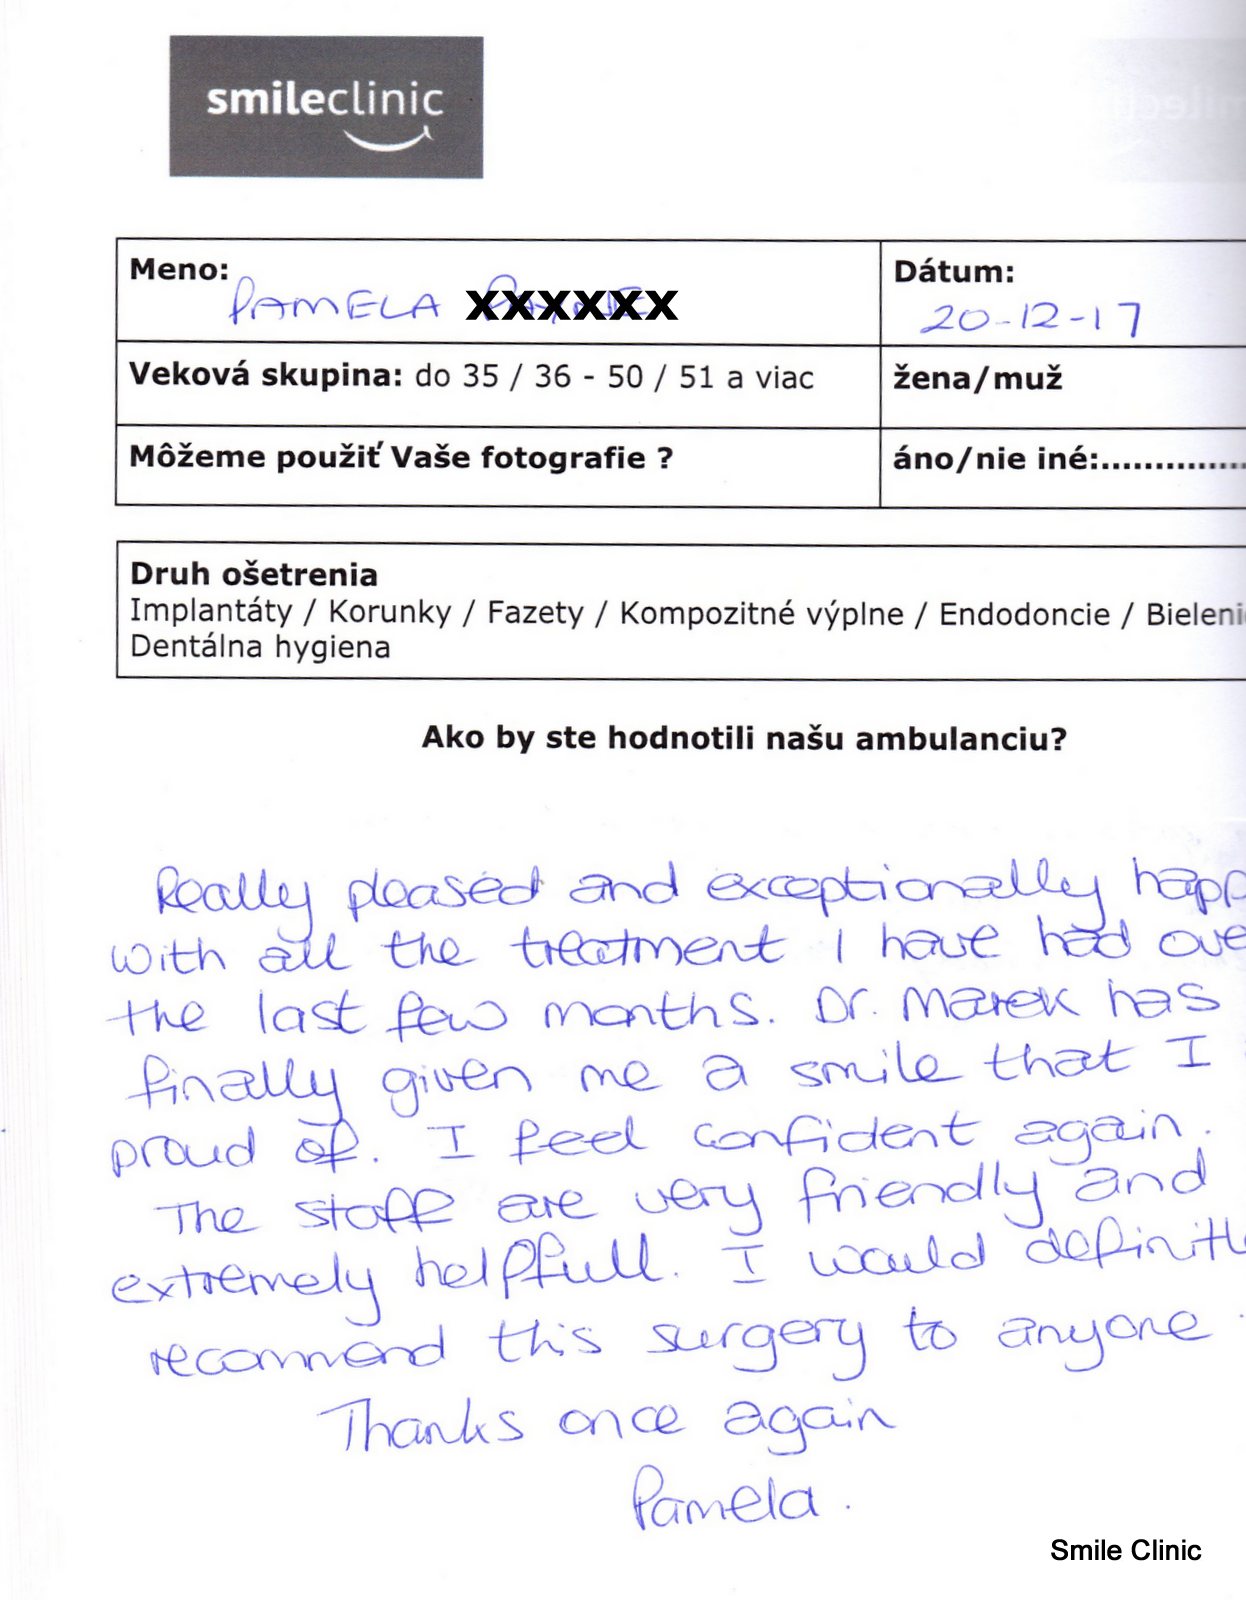 smileclinic
Meno:
PAMELA XXXXXX
Dátum:
20-12-17
Veková skupina: do 35 / 36 - 50 / 51 a viac
žena/muž
Môžeme použiť Vaše fotografie ?
áno/nie iné:..............
Druh ošetrenia
Implantáty / Korunky / Fazety / Kompozitné výplne / Endodoncie / Bieleni
Dentálna hygiena
Ako by ste hodnotili našu ambulanciu?
Really pleased and exceptionally happ
with all the treatment I have had ove
the last few months. Dr. Marek has
finally given me a smile that I
proud of. I feel confident again.
The staff are very friendly and
extremely helpfull. I would definitl
recommend this surgery to anyone.
Thanks once again
Pamela.
Smile Clinic